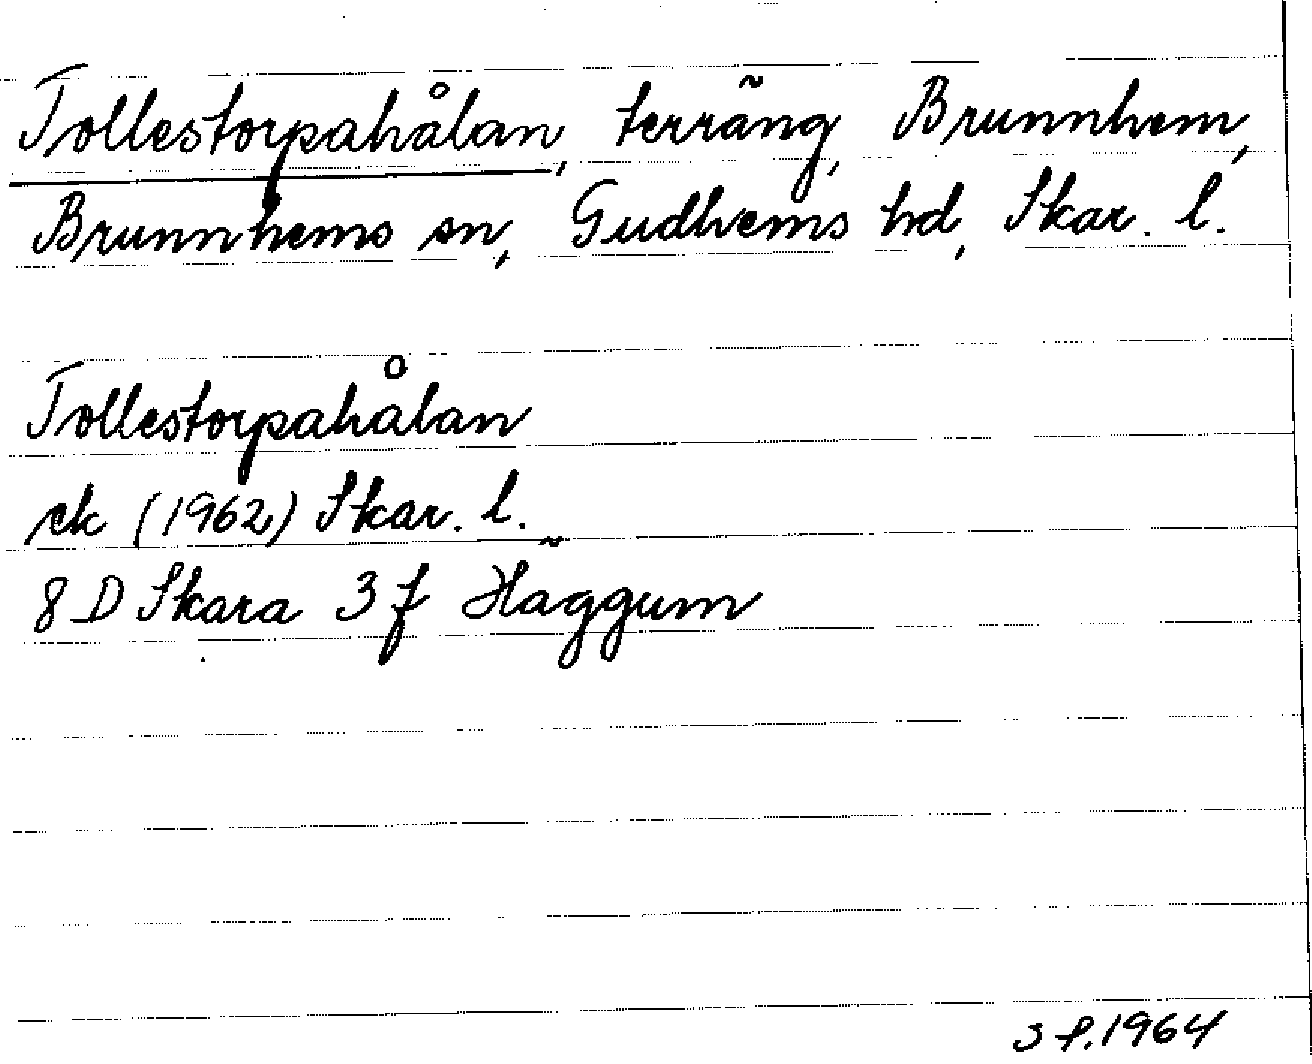 Tollestorpahålan, terräng, Brunnhem,
Brunnhems sn, Gudhems hd, Skar. l.
Tollestorpahålan
ek (1962) Skar. l.
8 D Skara 3 f Häggum
1964